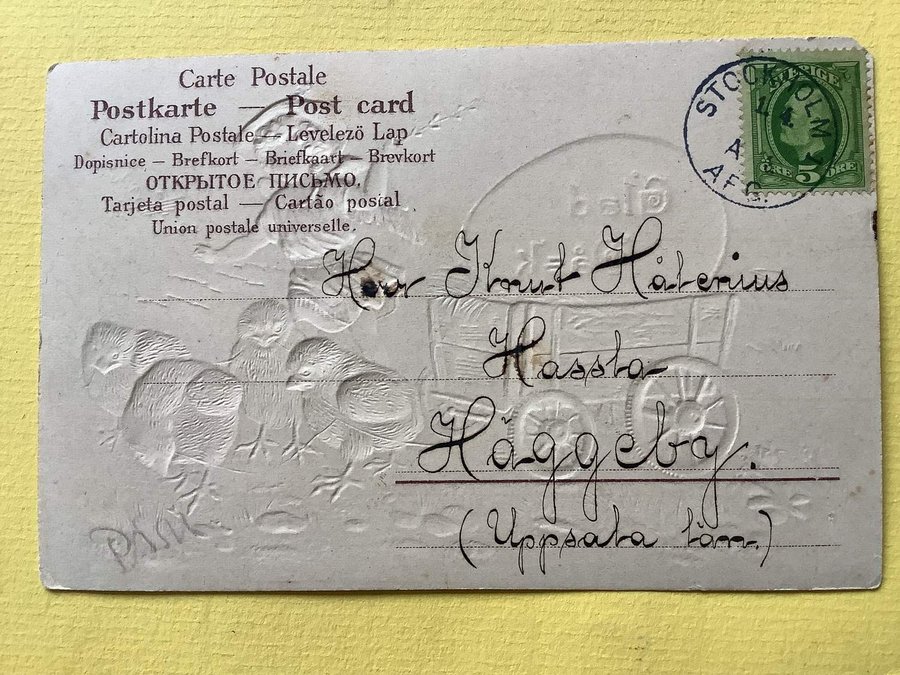 Carte Postale
Postkarte — Post card
Cartolina Postale — Levelezö Lap
Dopisnice — Brefkort — Briefkaart — Brevkort
ОТКРЫТОЕ ПИСЬМО.
Tarjeta postal — Cartão postal
Union postale universelle.
STOCKHOLM
AFG.
SVERIGE
ÖRE 5 ÖRE
Glad
Påsk
Herr Knut Håterius
Hassta
Häggeby.
(Uppsala län.)